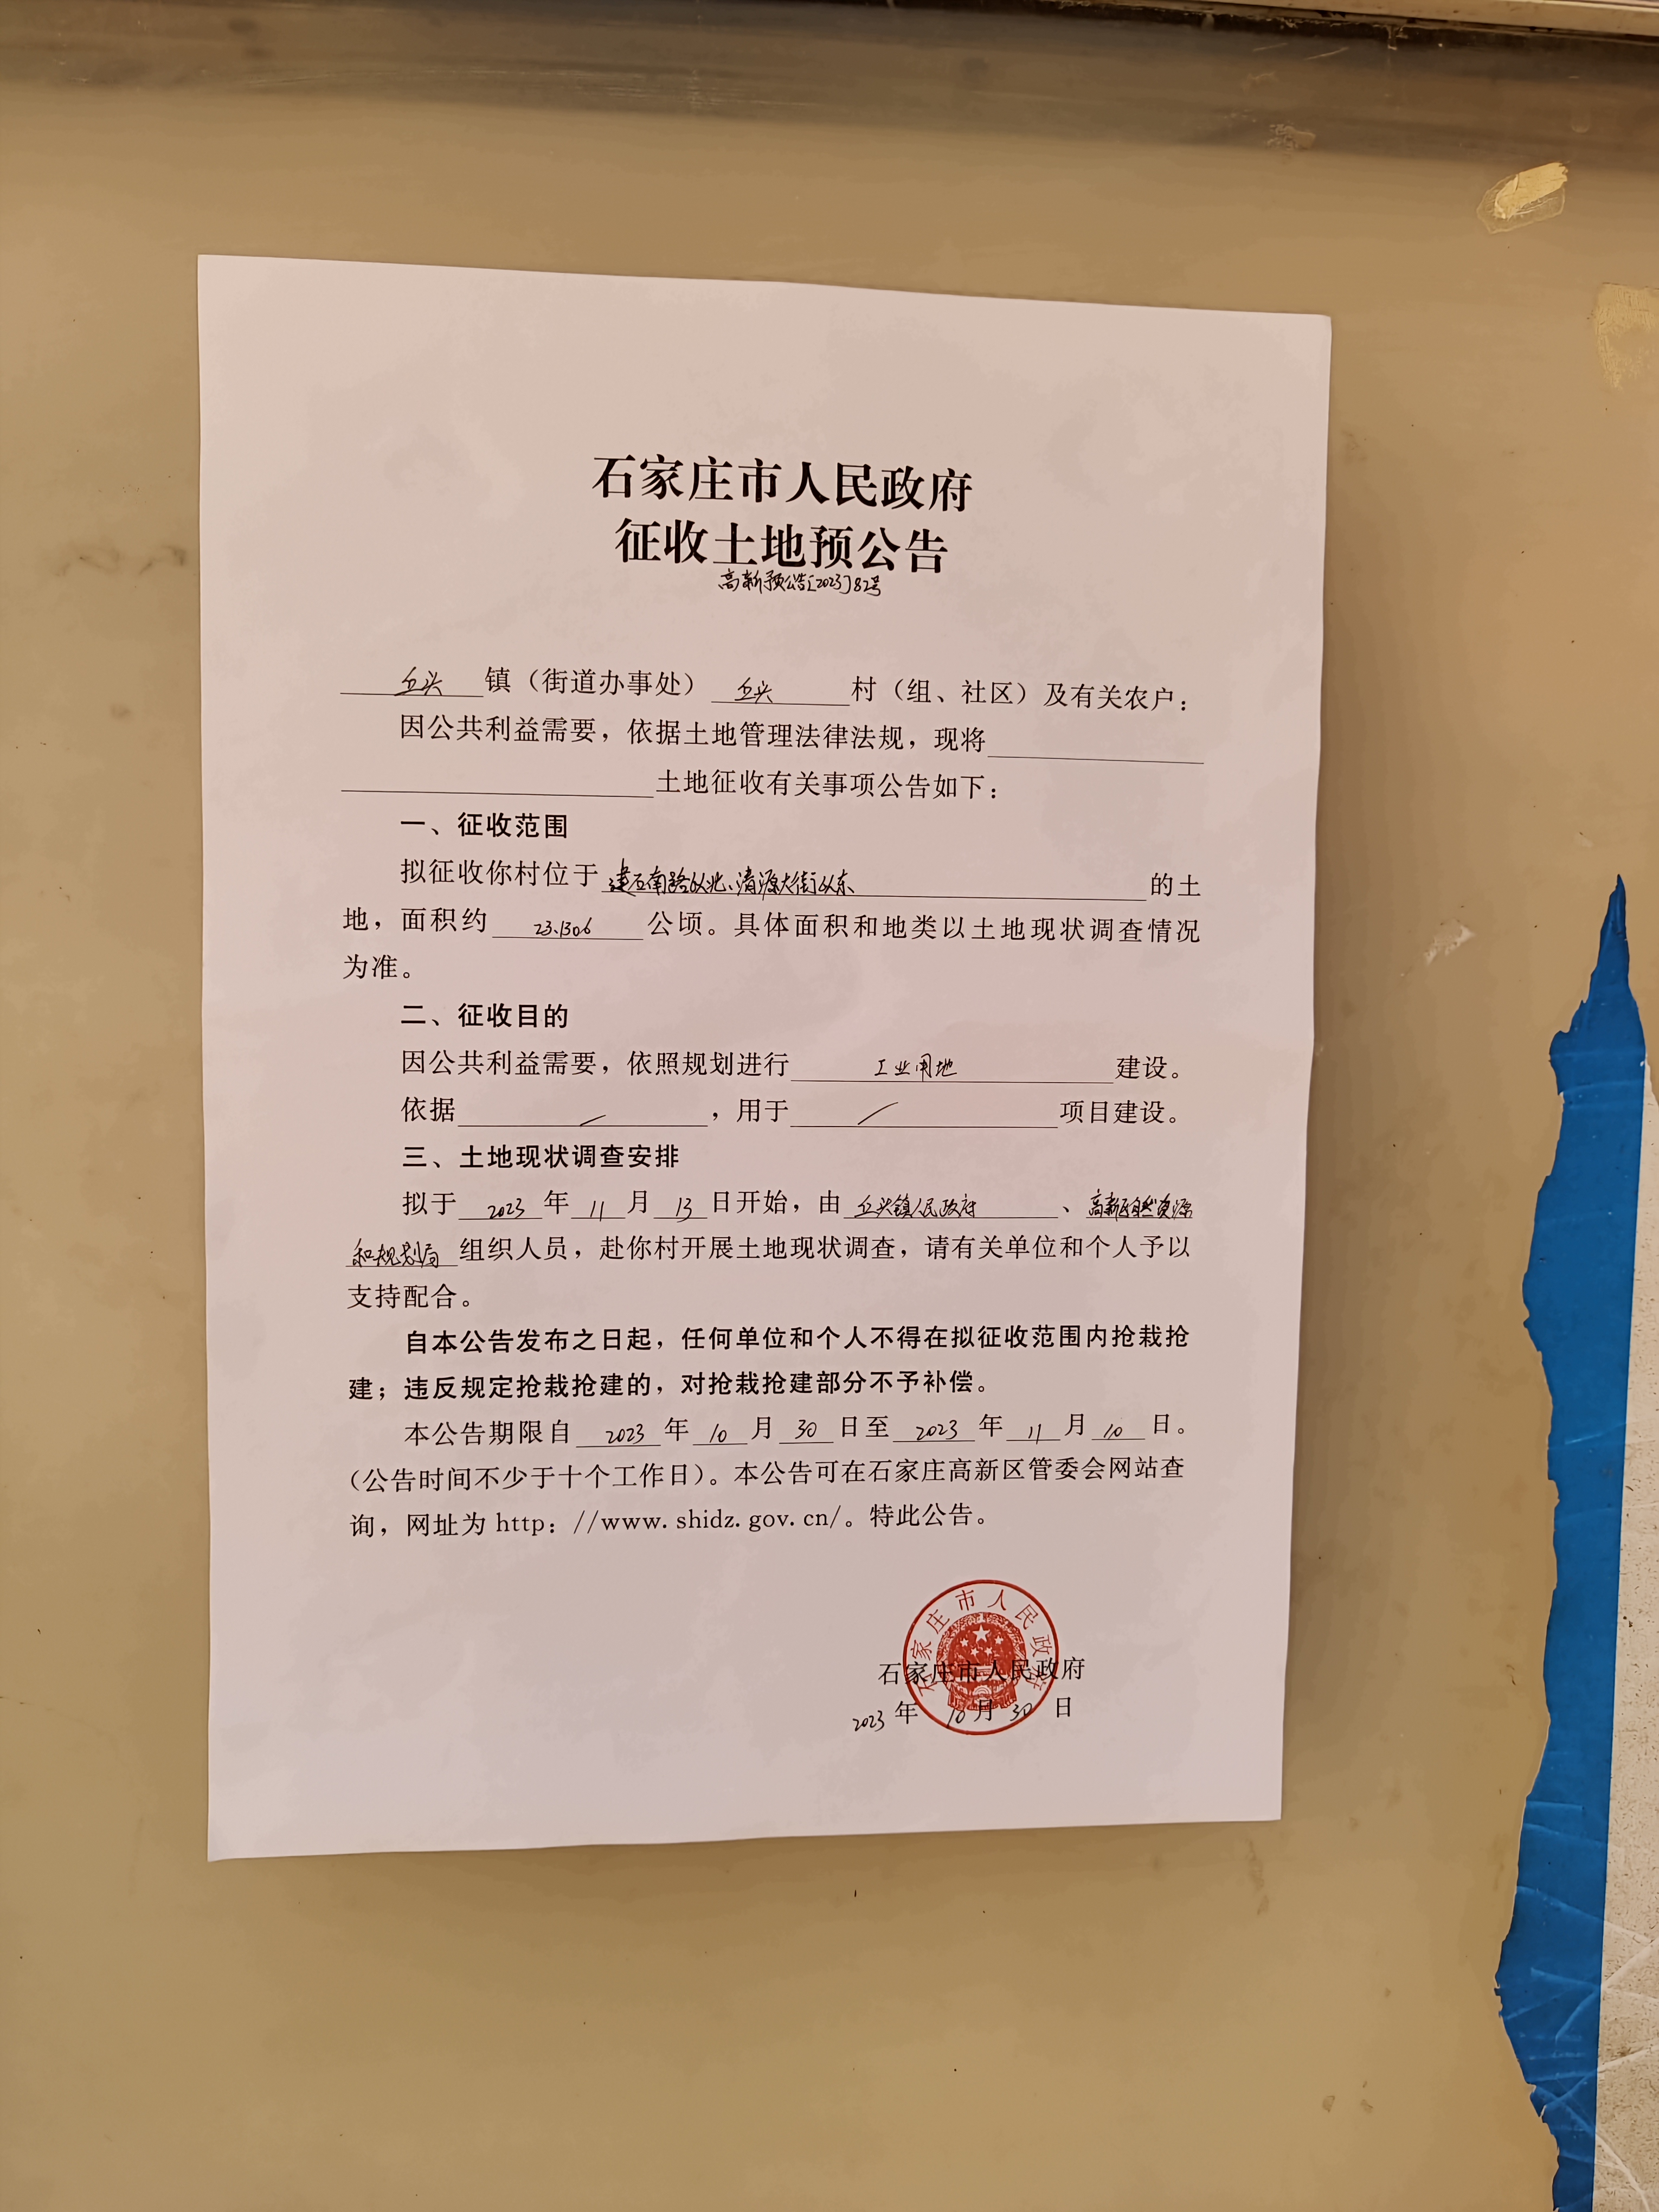 石家庄市人民政府
征收土地预公告
高新预公告[2023]82号
丘头镇（街道办事处）丘头村（组、社区）及有关农户：
因公共利益需要，依据土地管理法律法规，现将
土地征收有关事项公告如下：
一、征收范围
拟征收你村位于建石南路以北、清源大街以东的土
地，面积约23.1306公顷。具体面积和地类以土地现状调查情况
为准。
二、征收目的
因公共利益需要，依照规划进行工业用地建设。
依据/，用于/项目建设。
三、土地现状调查安排
拟于2023年11月13日开始，由丘头镇人民政府、高新区自然资源
和规划局组织人员，赴你村开展土地现状调查，请有关单位和个人予以
支持配合。
自本公告发布之日起，任何单位和个人不得在拟征收范围内抢栽抢
建；违反规定抢栽抢建的，对抢栽抢建部分不予补偿。
本公告期限自2023年10月30日至2023年11月10日。
（公告时间不少于十个工作日）。本公告可在石家庄高新区管委会网站查
询，网址为 http：//www.shidz.gov.cn/。特此公告。
石家庄市人民政府
石家庄市人民政府
2023年10月30日